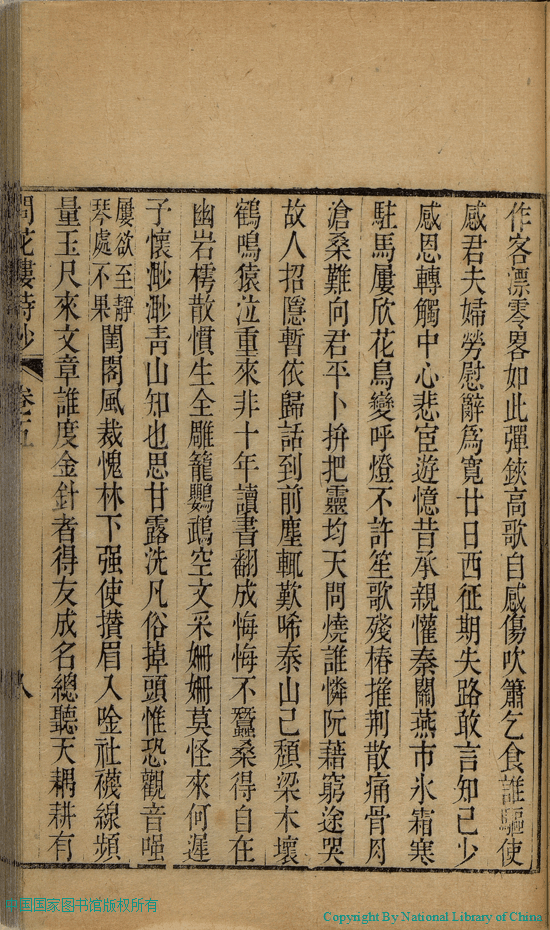 作客漂零畧如此彈鋏高歌自感傷吹簫乞食誰驅使
感君夫婦勞慰辭爲寬廿日西征期失路敢言知己少
感恩轉觸中心悲宦遊憶昔承親懽秦關燕市氷霜寒
駐馬屢欣花鳥變呼燈不許笙歌殘椿摧荆散痛骨肉
滄桑難向君平卜拚把靈均天問燒誰憐阮藉窮途哭
故人招隱暫依歸話到前塵輒歎唏泰山已頽梁木壞
鶴鳴猿泣重來非十年讀書翻成悔悔不蠶桑得自在
幽岩樗散慣生全雕籠鸚鵡空文采姍姍莫怪來何遲
子懷渺渺靑山知也思甘露洗凡俗掉頭惟恐觀音嗤
屢欲至靜
琴處不果
閨閣風裁愧林下强使攢眉入唫社襪線頻
量玉尺來文章誰度金針者得友成名總聽天耦耕有
問花樓詩鈔
卷五
八
中国国家图书馆版权所有
Copyright By National Library of China